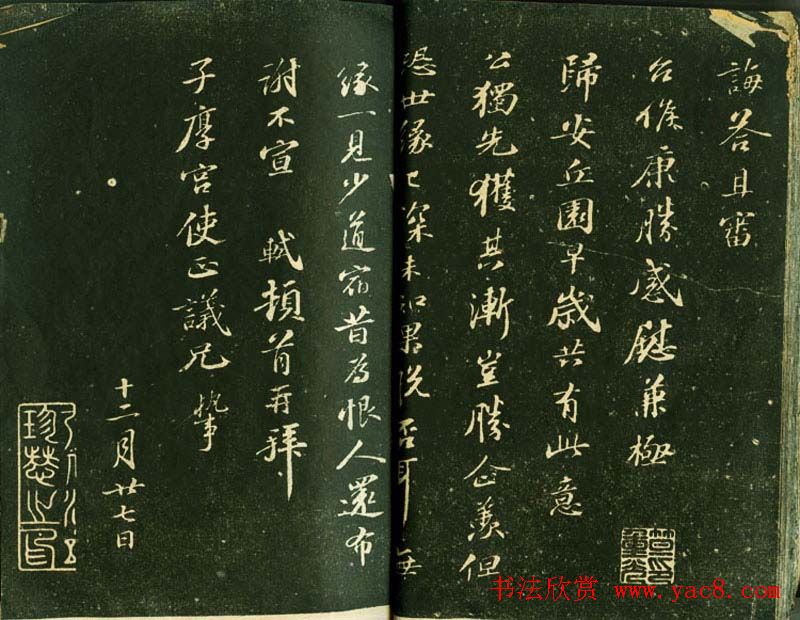 誨答且審
台候康勝感慰兼極
歸安丘園早歲共有此意
公獨先獲其漸豈勝企羨但
恐世緣已深未知果脫否耳無
緣一見少道宿昔為恨人還布
謝不宣 軾頓首再拜
子厚宮使正議兄執事
十二月廿七日
书法欣赏 www.yac8.com